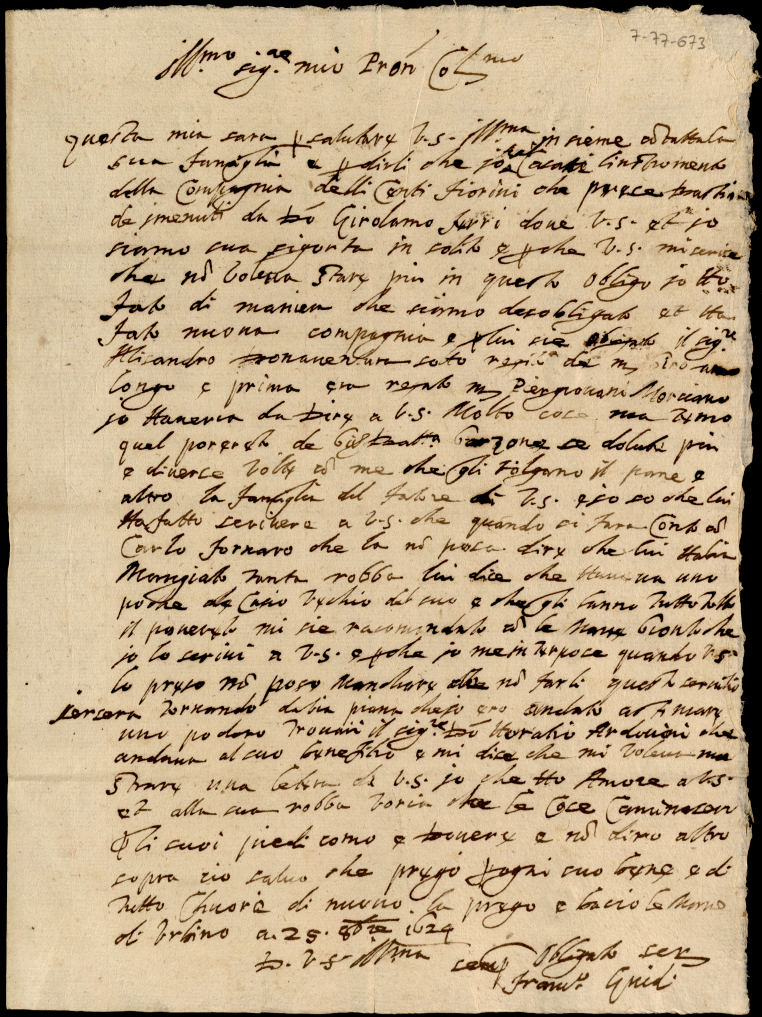 7-77-673
Ill.mo sig.re mio Pron Col.mo
questa mia sara p salutare V.S. Ill.ma insieme cō tutta la
sua famiglia e p dirli che jo ho Casati l'instromento
della Compagnia delli Centi fiorini che prese
de jmenuti da Dō Girolamo doue V.S. et jo
siamo sua sigorta in solito e p che V.S. mi scrisse
che nō voleua stare piu in questo obligo jo Ho
fato di maniera che siamo desobligati et Ha
fato nuoua compagnia e p lui sie il sig.re
Alisandro bonauentura soto de m
longo e prima era m Piergiouani Morciano
jo Haueria da Dire a V.S. Molto cose ma
quel poreto de Garzone se dolute piu
e diuerse volte cō me che gli tolgano il pane e
altro la famiglia del fatore di V.S. e jo so che lui
Ha fatto scriuere a V.S. che quando si fara Conto cō
Carlo fornaro che la nō posa dire che lui Habia
Mangiato tanta robba lui dice che Haueua uno
poche de Casio Vechio del suo e che gli hanno tutto tolto
il pouereto mi sie racomandato cō le Mane Gionte che
jo lo scriui a V.S. e p che jo me interpose quando V.S.
lo prese nō poso Manchare che nō farli questo seruitio
jersera tornando dalla piana che jo ero andato a stimare
uno podere trouai il sig.re Dō Horatio Ardouini che
andaua al suo benefitio e mi dice che mi voleua mo
strare una letera di V.S. jo che Ho Amore a V.S.
et alla sua robba voria che le Cose Caminasero
p li suoi piedi como e Douere e nō diro altro
sopra cio saluo che prego p ogni suo bene e di
tutto Chuore di nuouo la prego e bacio le Mane
di Urbino a. 25. 8bre 1624
D. V.S. Ill.ma
semp Obligato ser
Fran.co Guidi